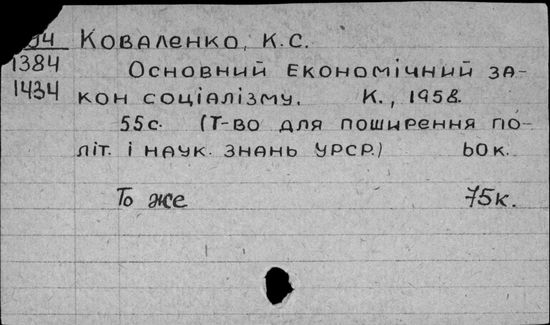 Коваленко, К.С.
1384 Основний економічний за-
1434 кон соціалізму. К., 1958.
55с. (Т-во для поширення по-
літ. і наук. знань УРСР.) 60к.
То же 75к.